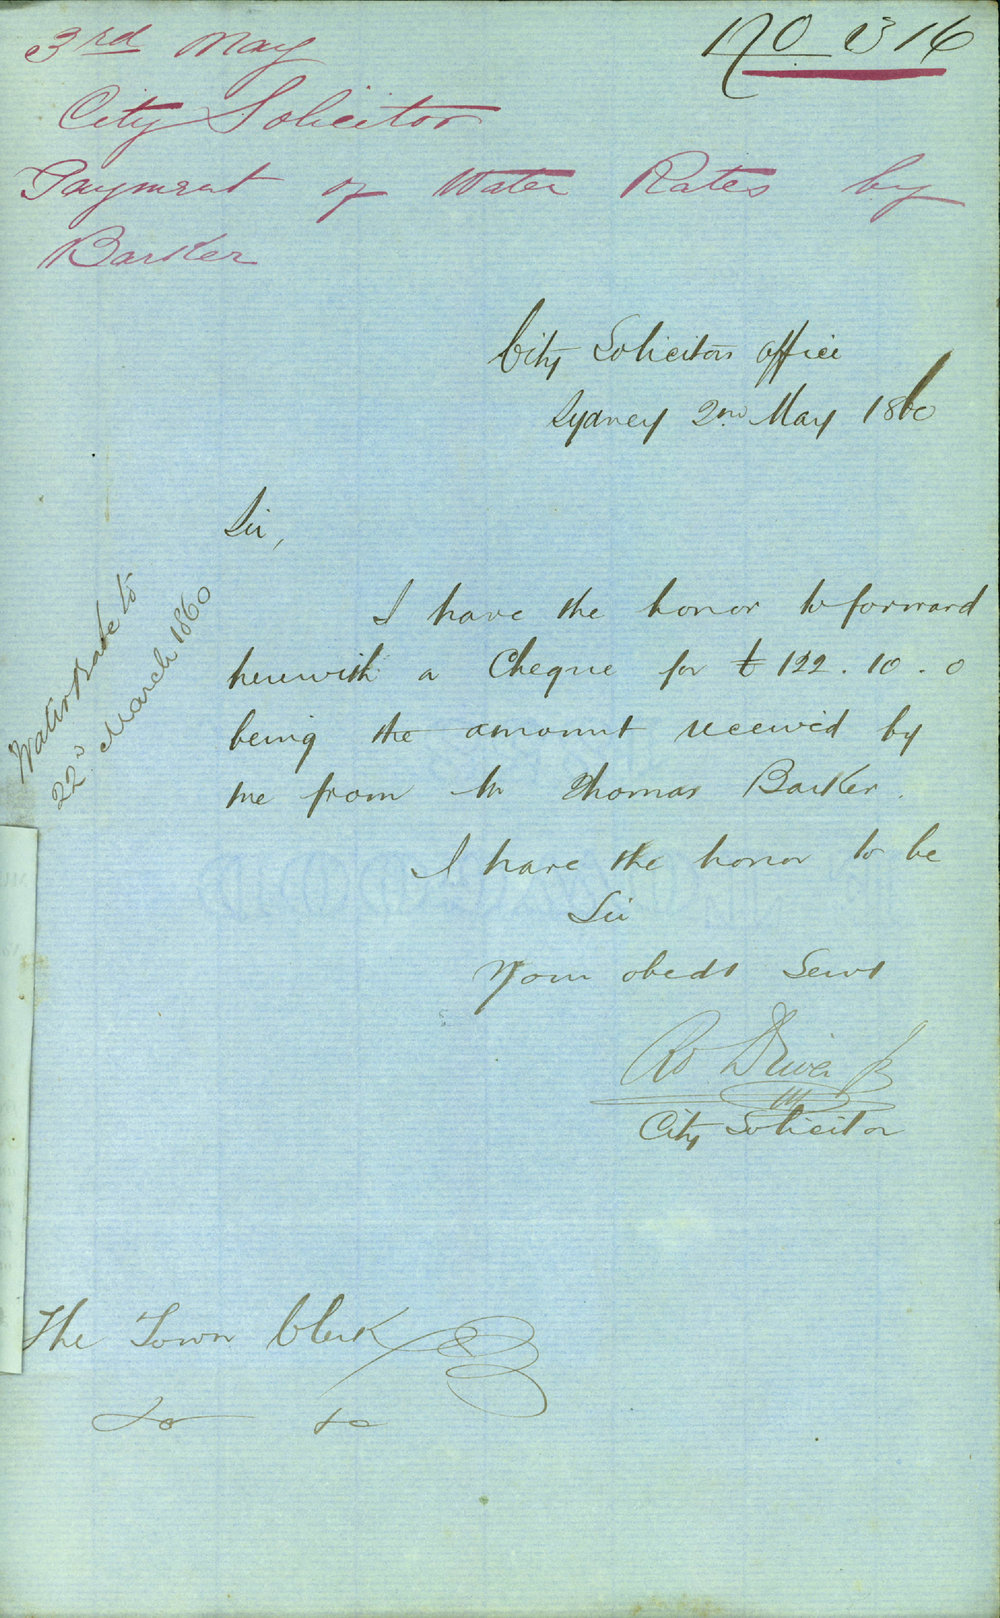 No 316
3rd May
City Solicitor
Payment of Water Rates by
Barker
City Solicitors Office
Sydney 2nd May 1860
Sir,
I have the honor to forward
herewith a Cheque for £122.10.0
being the amount received by
me from Mr Thomas Barker.
I have the honor to be
Sir
Your obedt Servt
Ro Driver Jr
City Solicitor
Water Rate to
22d March 1860
The Town Clerk